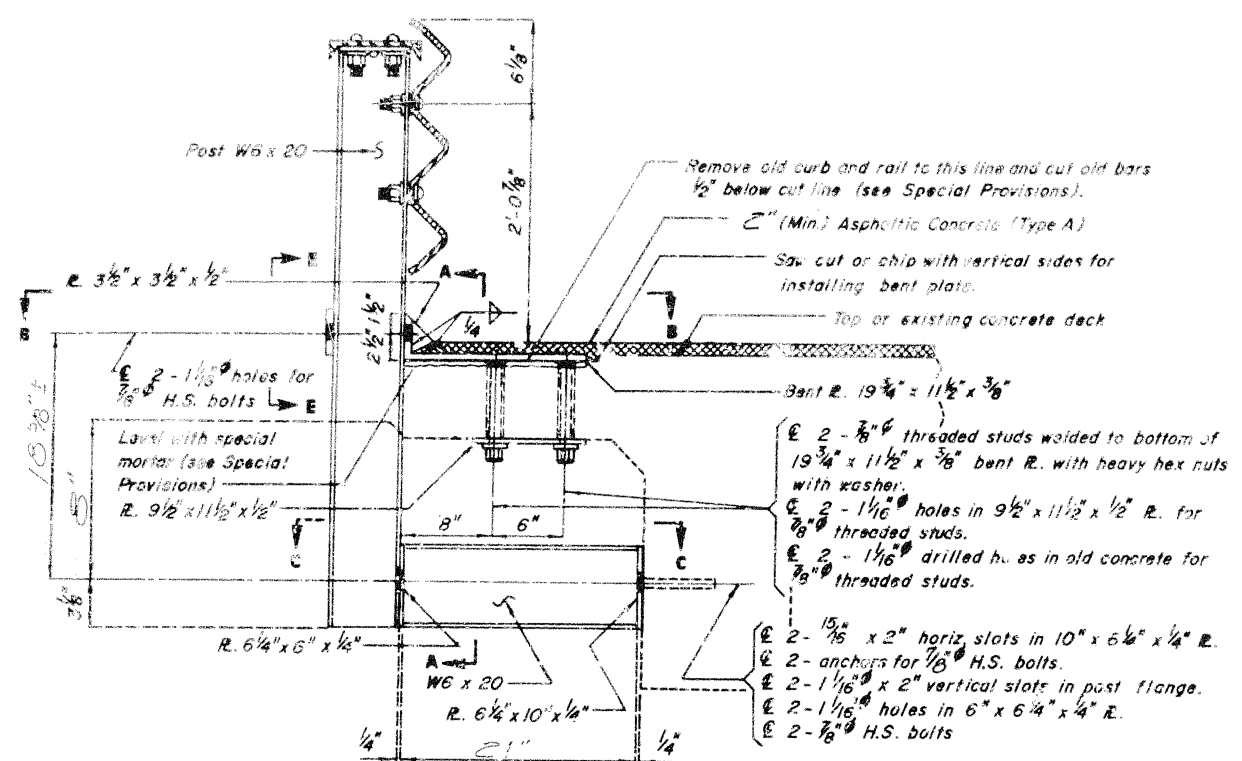 6⅛"
2'-0⅞"
Post W6 x 20
Remove old curb and rail to this line and cut old bars
½" below cut line (see Special Provisions).
2" (Min.) Asphaltic Concrete (Type A)
Saw cut or chip with vertical sides for
installing bent plate.
Top of existing concrete deck
E
A
PL 3½" x 3½" x ½"
B
B
2½" 1½"
¼
℄ 2 - 1 1/16"ϕ holes for
⅞"ϕ H.S. bolts
E
Bent PL 19¾" x 11½" x ⅜"
18⅝"±
Level with special
mortar (see Special
Provisions)
PL 9½" x 11½" x ½"
℄ 2 - ⅞"ϕ threaded studs welded to bottom of
19¾" x 11½" x ⅜" bent PL with heavy hex nuts
with washer.
℄ 2 - 1 1/16"ϕ holes in 9½" x 11½" x ½" PL for
⅞"ϕ threaded studs.
℄ 2 - 1 1/16"ϕ drilled holes in old concrete for
⅞"ϕ threaded studs.
8"
6"
C
C
PL 6¼" x 6" x ¼"
A
W6 x 20
PL 6¼" x 10" x ¼"
℄ 2 - 15/16" x 2" horiz. slots in 10" x 6¼" x ¼" PL
℄ 2 - anchors for ⅞"ϕ H.S. bolts.
℄ 2 - 1 1/16"ϕ x 2" vertical slots in post flange.
℄ 2 - 1 1/16"ϕ holes in 6" x 6¼" x ¼" PL
℄ 2 - ⅞"ϕ H.S. bolts
¼"
21"
¼"